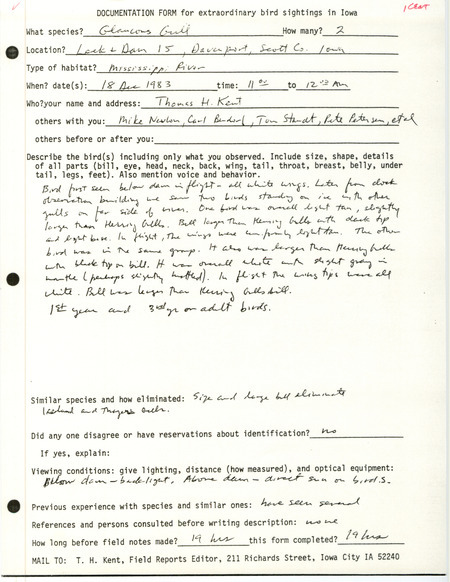 1 CENT
DOCUMENTATION FORM for extraordinary bird sightings in Iowa
What species? Glaucous Gull How many? 2
Location? Lock & Dam 15, Davenport, Scott Co. Iowa
Type of habitat? Mississippi River
When? date(s): 18 Dec 1983 time: 11 00 to 12 AM
Who?your name and address: Thomas H. Kent
others with you: Mike Newlon, Carl Bendorf, Tom Staudt, Pete Petersen, et al
others before or after you:
Describe the bird(s) including only what you observed. Include size, shape, details
of all parts (bill, eye, head, neck, back, wing, tail, throat, breast, belly, under
tail, legs, feet). Also mention voice and behavior.
Bird first seen below dam in flight - all white wings. Later from deck
observation building we saw two birds standing on ice with other
gulls on far side of river. One bird was overall light tan, slightly
larger than Herring Gulls. Bill larger than Herring Gulls with dark tip
and light base. In flight, the wings were uniformly light tan. The other
bird was in the same group. It also was larger than Herring Gulls
with black tip on bill. It was overall white with slight gray in
mantle (perhaps slightly mottled). In flight the wing tips were all
white. Bill was larger than Herring Gulls bill.
1st year and 3rd yr or adult birds.
Similar species and how eliminated: Size and large bill eliminate
Iceland and Thayer's Gulls.
Did any one disagree or have reservations about identification? no
If yes, explain:
Viewing conditions: give lighting, distance (how measured), and optical equipment:
Below dam - back-light. Above dam - direct sun on birds.
Previous experience with species and similar ones: have seen several
References and persons consulted before writing description: none
How long before field notes made? 19 hrs this form completed? 19 hrs
MAIL TO: T. H. Kent, Field Reports Editor, 211 Richards Street, Iowa City IA 52240